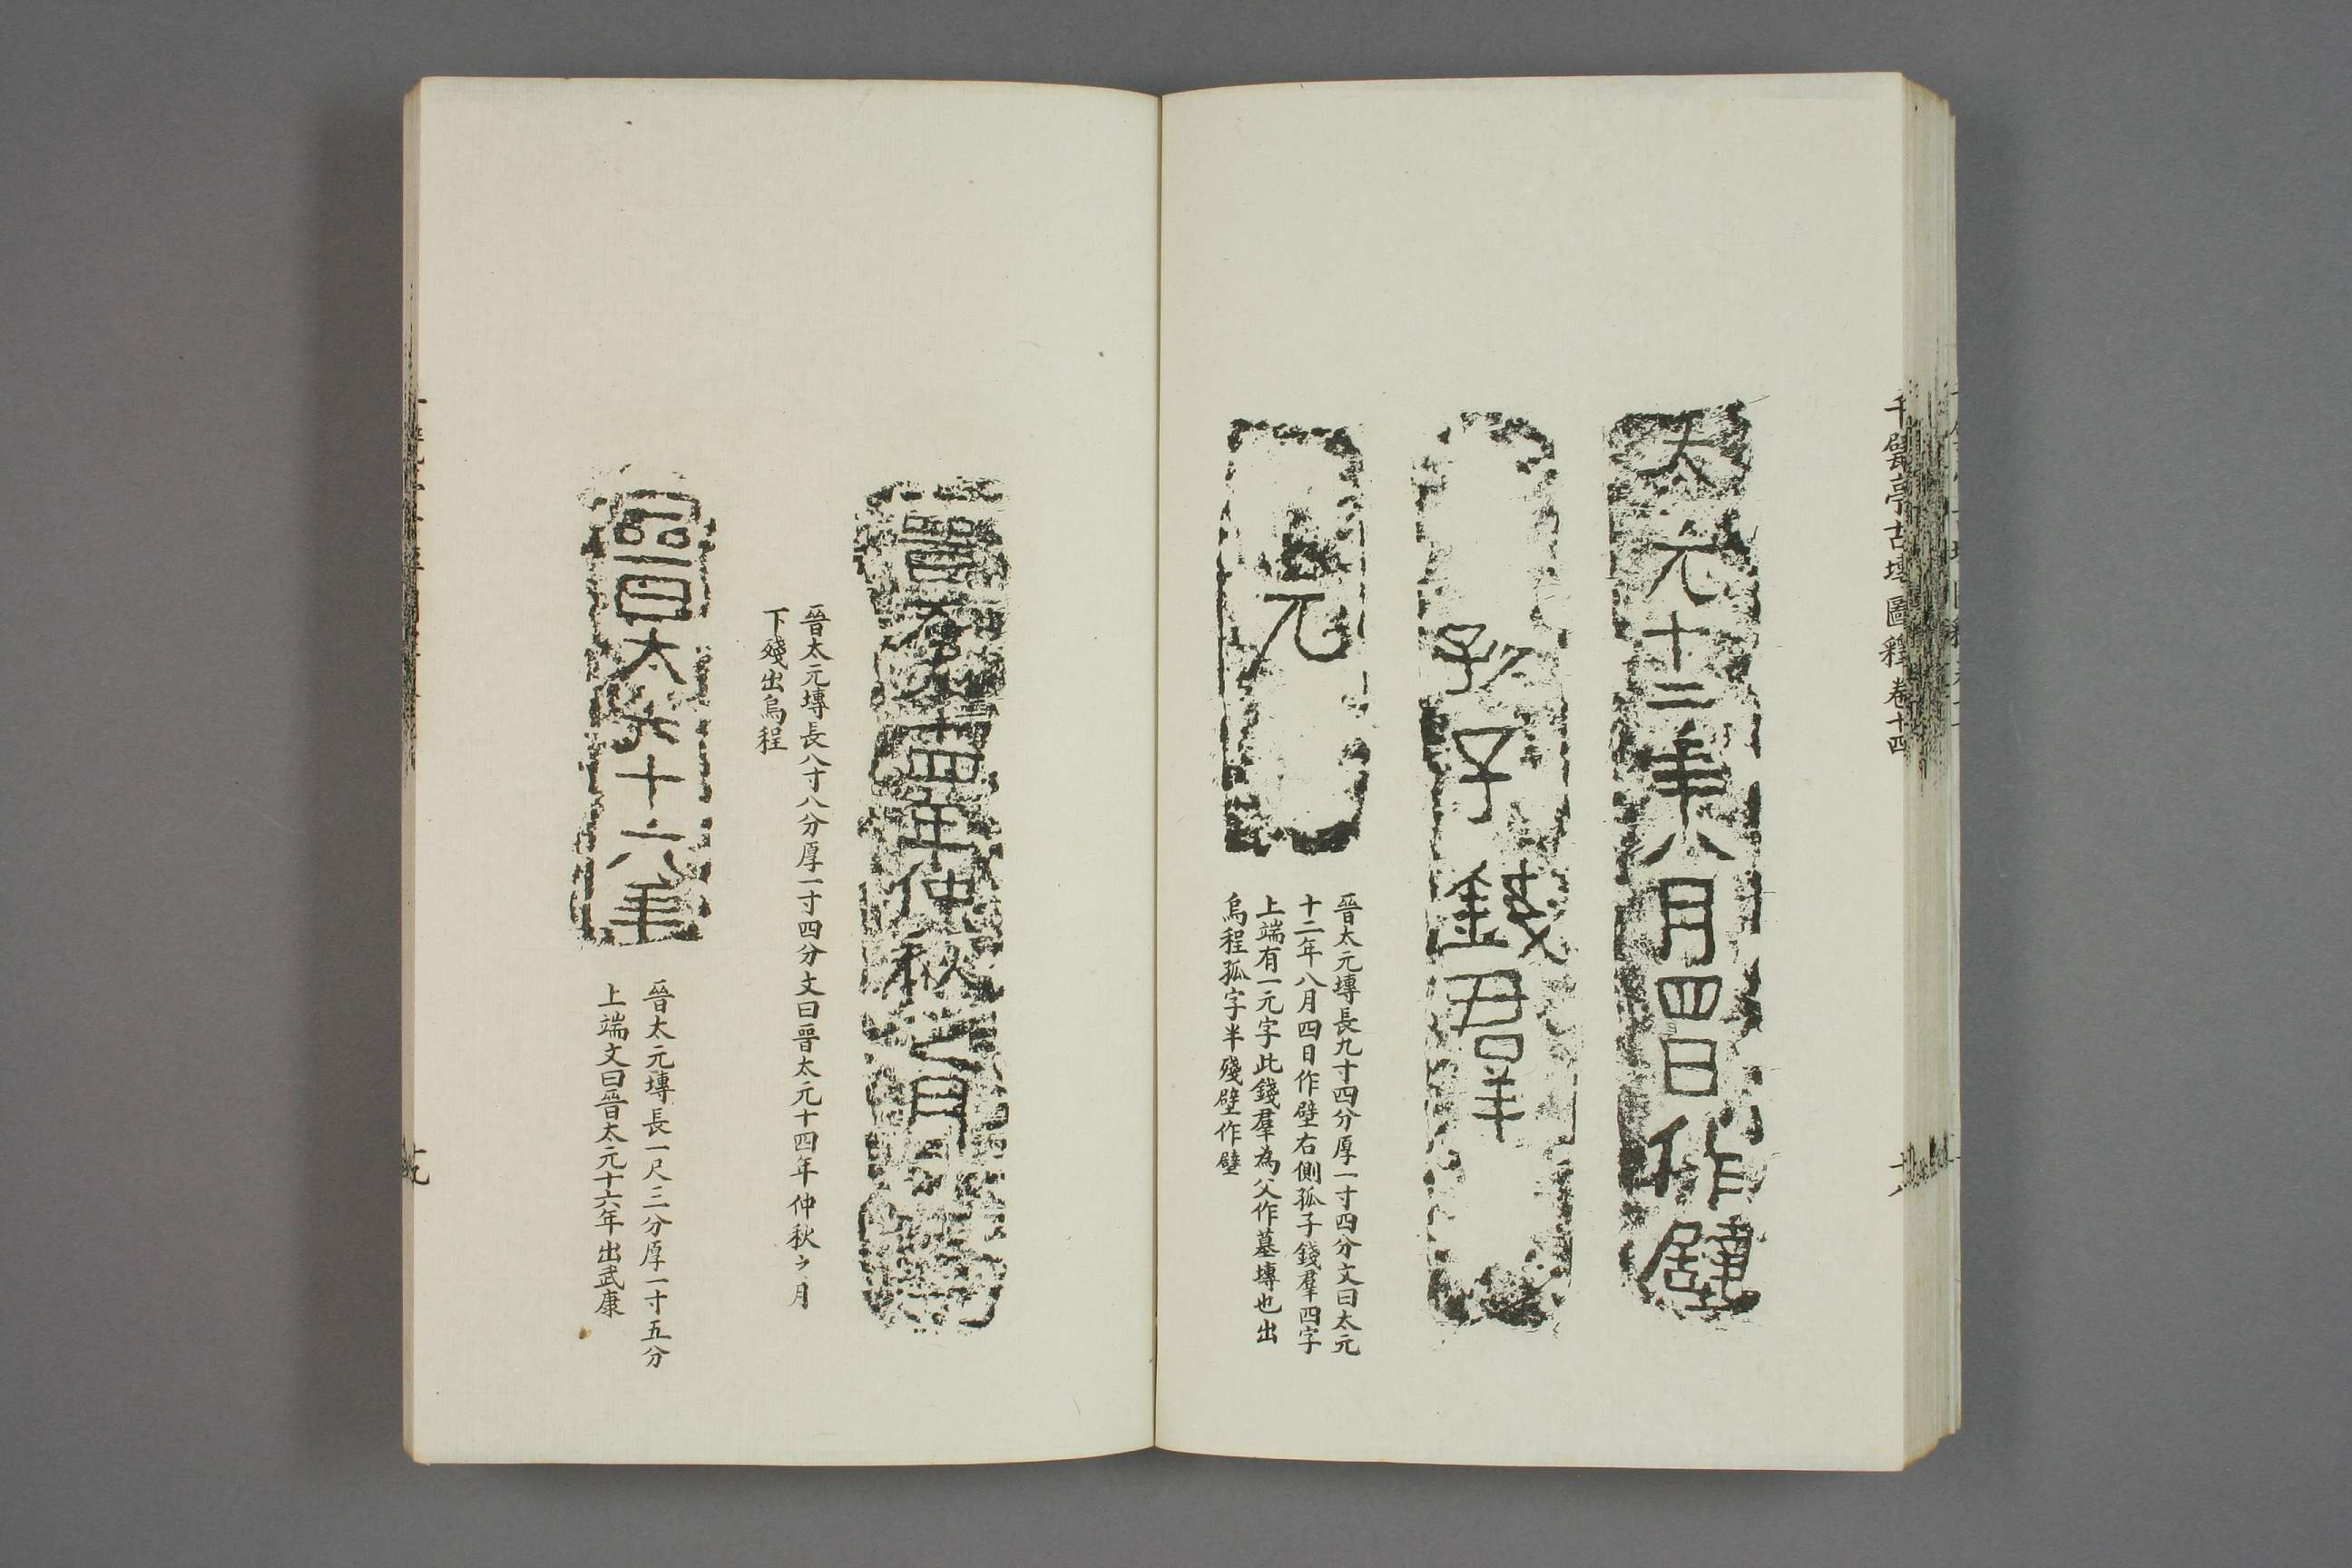 千甓亭古塼圖釋卷十四
十八
太元十二年八月四日作壁
孤子錢君羊
元
晉太元塼長九寸四分厚一寸四分文曰太元
十二年八月四日作壁右側孤子錢羣四字
上端有一元字此錢羣為父作墓塼也出
烏程孤字半殘壁作壁
晉太元十四年仲秋之月
晉太元塼長八寸八分厚一寸四分文曰晉太元十四年仲秋之月
下殘出烏程
晉太元十六年
晉太元塼長一尺三分厚一寸五分
上端文曰晉太元十六年出武康
十九